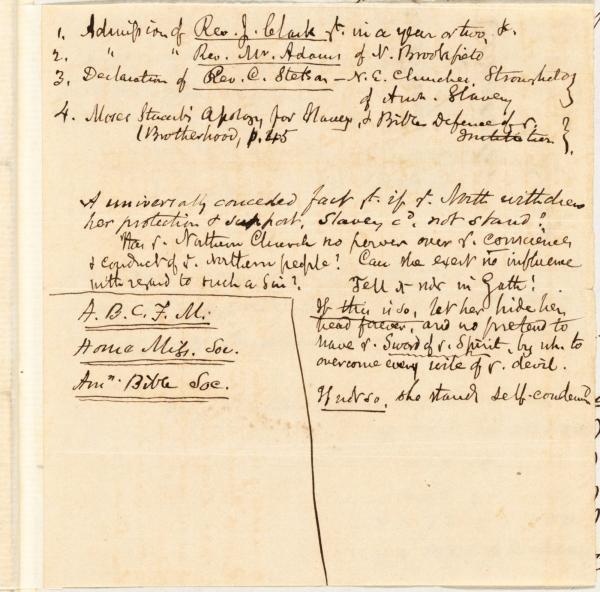 1. Admission of Rev. J. Clark yt. in a year or two, &.
2. " " Rev. Mr. Adams of N. Brookfield
3. Declaration of Rev. C. Stetson – N. E. Churches, Strongholds
of Amn. Slavery
4. Moses Stuart's Apology for Slavery, & Bible Defence of y.
(Brotherhood, p. 45 Institution
A universally conceded fact yt. if y. North withdrew
her protection & support, Slavery cd. not stand.
Has y. Northern Church no power over y. consciences
& conduct of y. Northern people? Can she exert no influence
with regard to such a Sin? Tell it not in Gath!
A. B. C. F. M.
Home Miss. Soc.
Amn. Bible Soc.
If this is so, let her hide her
head forever, and no pretend to
have y. Sword of y. Spirit, by wh. to
overcome every wile of y. devil.
If not so, she stands self-condemnd